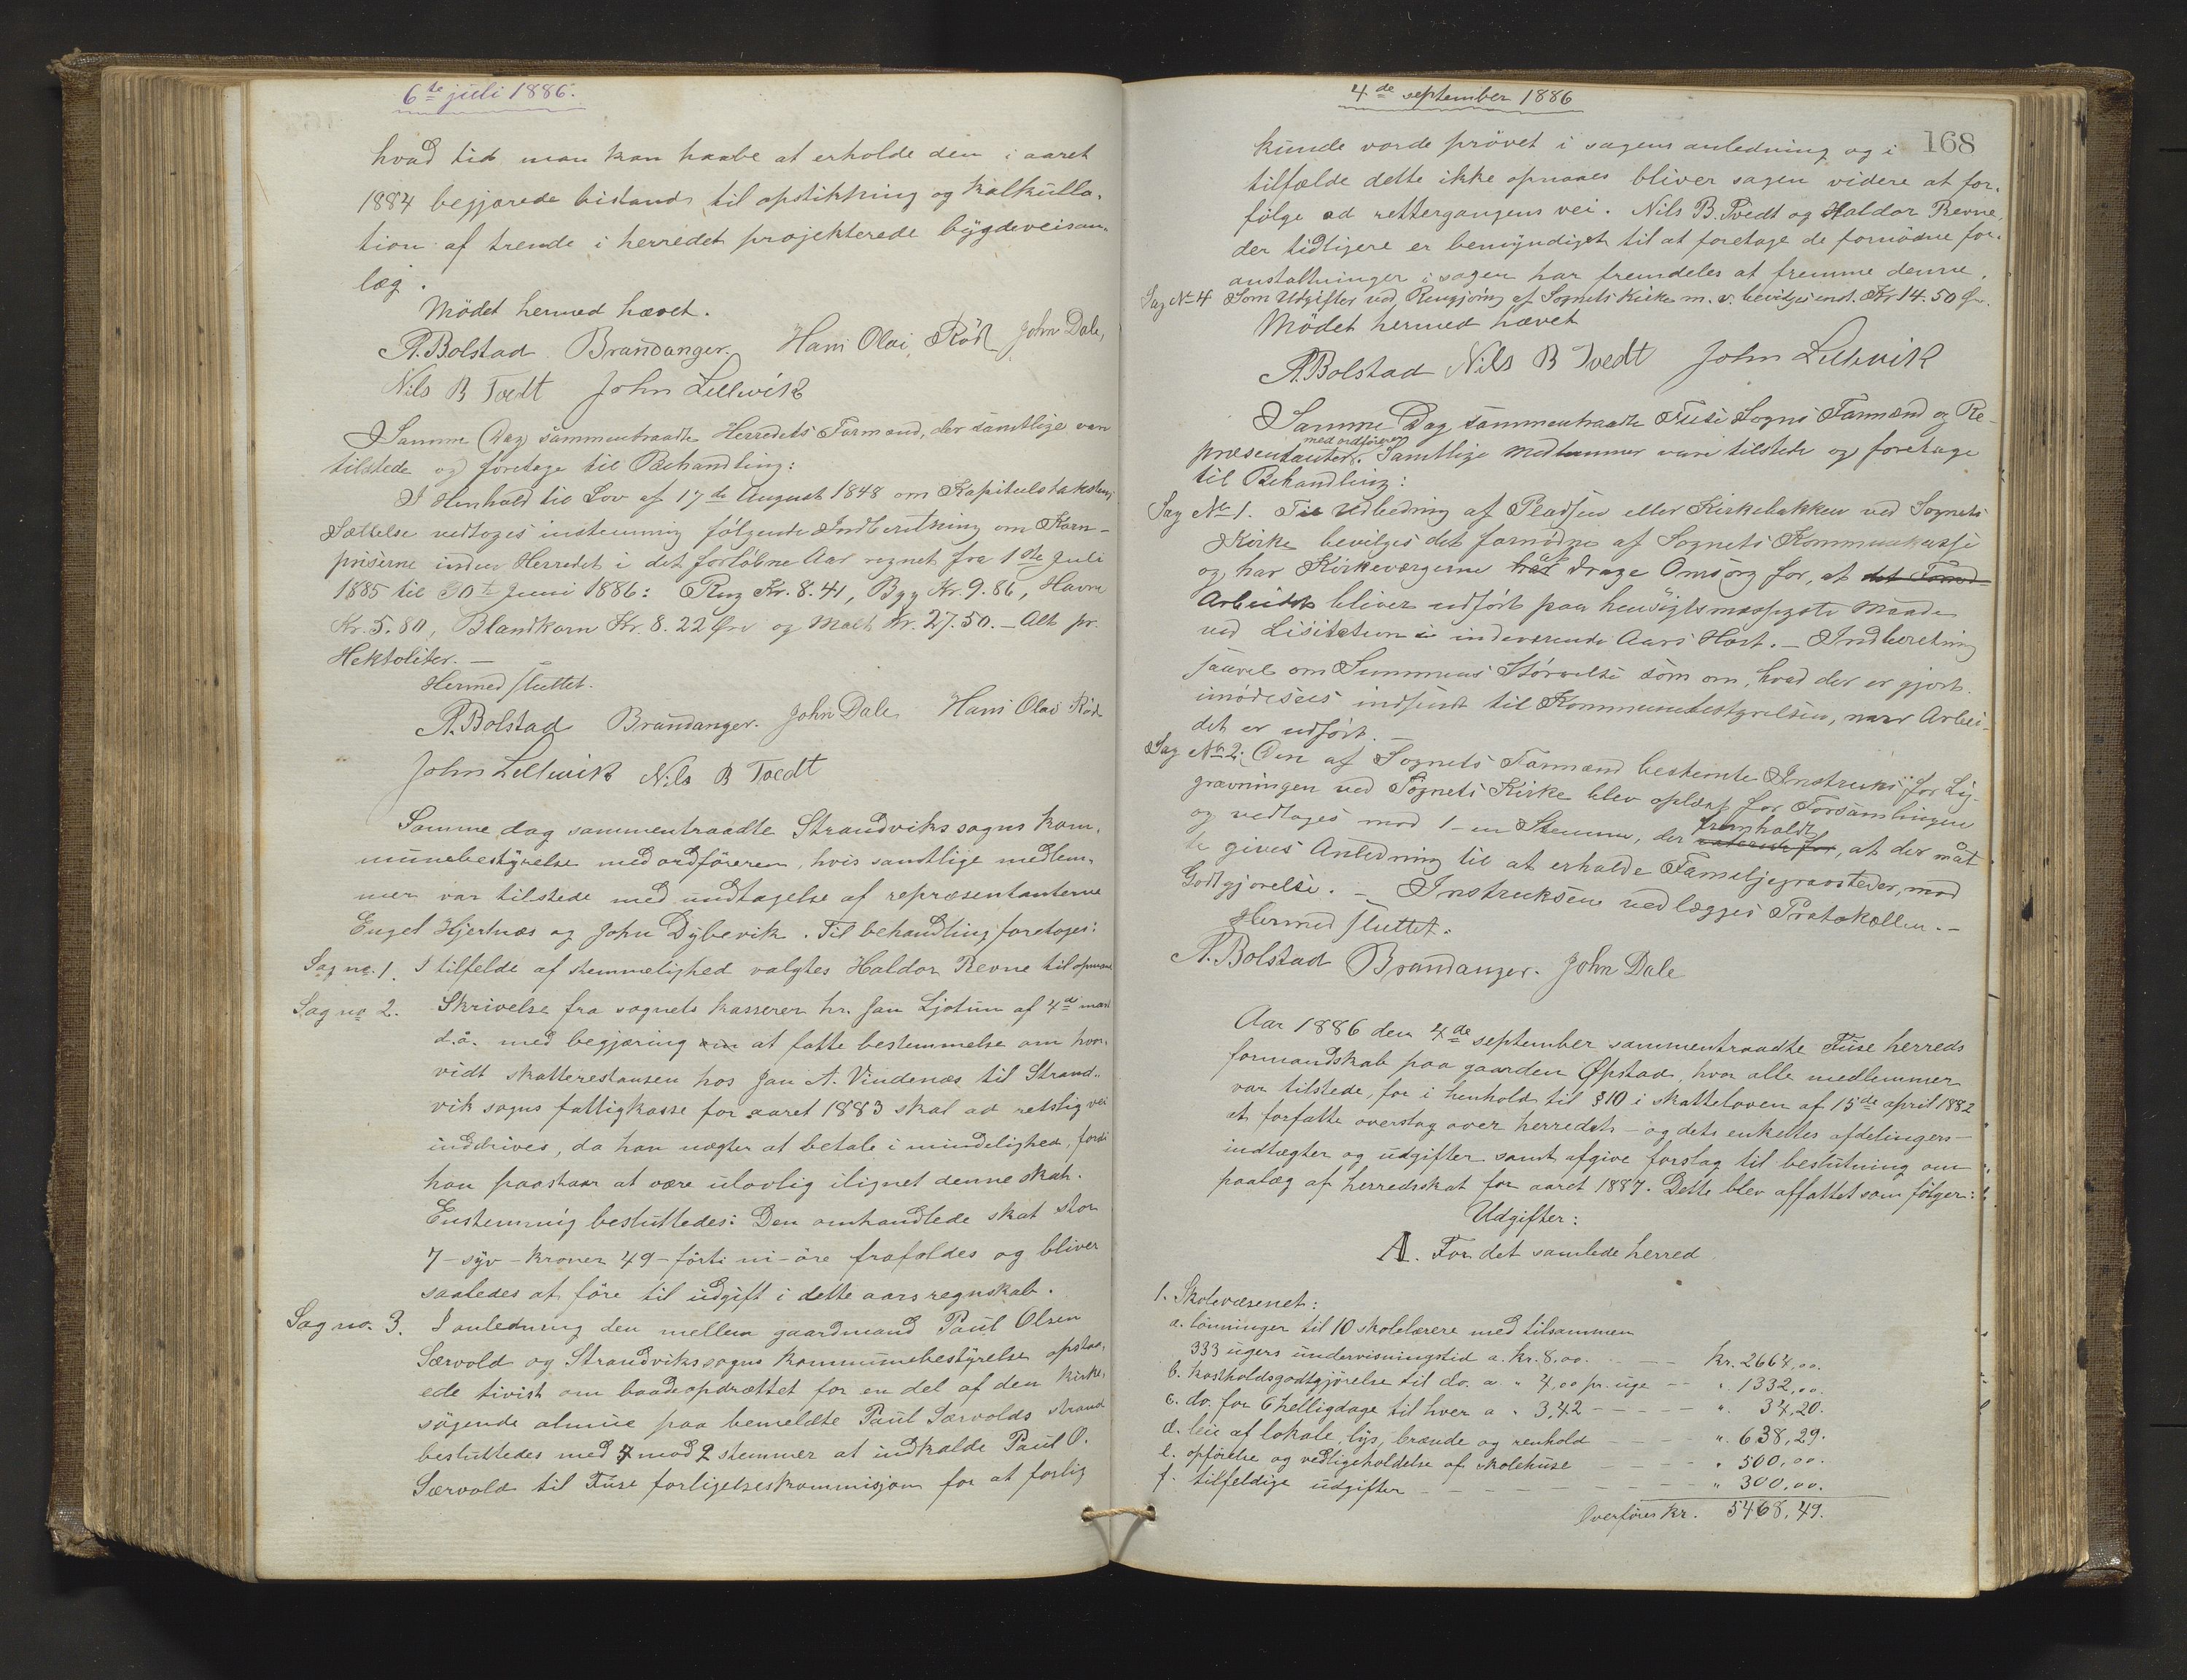 6te juli 1886.
hvad tid man kan haabe at erholde den i aaret
1884 begjærede bistand til opstikking og kalkulla-
tion af trende i herredet projekterede bygdeveisan-
læg.
Mödet hermed hævet.
A. Bolstad Brandanger. Hans Olai Röd John Dale,
Nils B Tvedt John Lillevik
Samme Dag sammentraadte Herredets Formænd, der samtlige var
tilstede og foretage til Behandling:
I Henhold til Lov af 17de August 1848 om Kapitelstakstens
Sættelse vedtoges instemmig følgende Indberetning om Korn-
priserne inden Herredet i det forløbne Aar regnet fra 1ste Juli
1885 til 30te Juni 1886: Rug Kr. 8.41, Byg Kr. 9.86, Havre
Kr. 5.80, Blandkorn Kr. 8.22 Øre og Malt Kr. 27.50. – Alt pr.
Hektoliter. –
Hermed sluttet.
A. Bolstad Brandanger. John Dale Hans Olai Röd
John Lillevik Nils B Tvedt
Samme dag sammentraadte Strandviks sogns kom-
munebestyrelse med ordföreren, hvis samtlige medlem-
mer var tilstede med undtagelse af repræsentanterne
Engel Hjertnæs og John Dybevik. Til behandling foretoges:
Sag no. 1. I tilfelde af stemmelighed valgtes Haldor Revne til opmand
Sag no 2. Skrivelse fra sognets kasserer hr. Jan Ljotun af 4de mai
d.å. med begjæring om at fatte bestemmelse om hvor-
vidt skatterestansen hos Jan A. Vindenæs til Strand-
vik sogns fattigkasse for aaret 1883 skal ad retslig vei
inddrives, da han nægter at betale i mindelighed, fordi
han paastaar at være ulovlig ilignet denne skat.
Enstemmig besluttedes: Den omhandlede skat stor
7 – syv – kroner 49 – förti ni – öre frafaldes og bliver
saaledes at före til udgift i dette aars regnskab.
Sag no. 3. I anledning den mellem gaardmand Paul Olsen
Særvold og Strandviks sogns kommunebestyrelse opstaa-
ede tvist om baadeopdrættet for en del af den kirke-
søgende almue paa bemeldte Paul Særvolds strand
besluttedes med 7 mod 2 stemmer at indkalde Paul O.
Særvold til Fuse forligelseskommisjon for at forlig
4de september 1886
168
kunde vorde prövet i sagens anledning og i
tilfælde dette ikke opnaaes bliver sagen videre at for-
følge ad rettergangens vei. Nils B. Tvedt og Haldor Revne,
der tidligere er bemyndiget til at foretage de fornödne for-
anstaltninger i sagen har fremdeles at fremme denne.
Sag No 4 Som Udgifter ved Rengjöring af Sognets Kirke m. v. bevilges enst. Kr 14.50 Ør.
Mödet hermed hævet
A. Bolstad Nils B Tvedt John Lillevik
Samme Dag sammentraadte Fuse Sogns Formænd og Re-
præsentanter med ordfører. Samtlige Medlemmer vare tilstede og foretage
til Behandling:
Sag No 1. Til Udbedring af Pladsen eller Kirkebakken ved Sognets
Kirke bevilges det fornødne af Sognets Kommunekasse
og har Kirkeværgerne at drage Omsorg for, at
Arbeidet bliver udført paa hensigtsmæssigste Maade
ved Lisitation i indeværende Aars Høst. – Indberetning
saavel om Summens Størrelse som om, hvad der er gjort
imødesees indsendt til Kommunebestyrelsen, naar Arbei-
det er udført. –
Sag No 2. Den af Sognets Formænd bestemte Instruks for Lig-
gravningen ved Sognets Kirke blev oplæst for Forsamlingen
og vedtoges mod 1 – en Stemme, der fremholdt, at der måt-
te gives Anledning til at erholde Familjegravsteder, mod
Godtgjørelse. – Instruksene vedlægges Protokollen. –
Hermed sluttet.
A. Bolstad Brandanger. John Dale
Aar 1886 den 4de september sammentraadte Fuse herreds
formandskab paa gaarden Øpstad, hvor alle medlemmer
var tilstede, for i henhold til § 10 i skatteloven af 15de april 1882
at forfatte overslag over herredets – og dets enkeltes afdelingers –
indtægter og udgifter samt afgive forslag til beslutning om
paalæg af herredsskat for aaret 1887. Dette blev affattet som fölger:
Udgifter:
A. For det samlede herred
1. Skolevæsenet:
a. lönninger til 10 skolelærere med tilsammen
333 ugers undervisningstid a. kr. 8,00. – – kr. 2664,00.
b. kostholdsgodtgjørelse til do. a " 4,00 pr. uge – – " 1332,00.
c. do. for 6 helligdage til hver a " 3,42 – – – – " 34,20.
d. leie af lokale, lys, brænde og renhold – – " 638,29.
e. opførelse og vedligeholdelse af skolehuse – – – " 500,00.
f. tilfeldige udgifter – – – – – – – " 300,00.
Overføres kr. 5468,49.